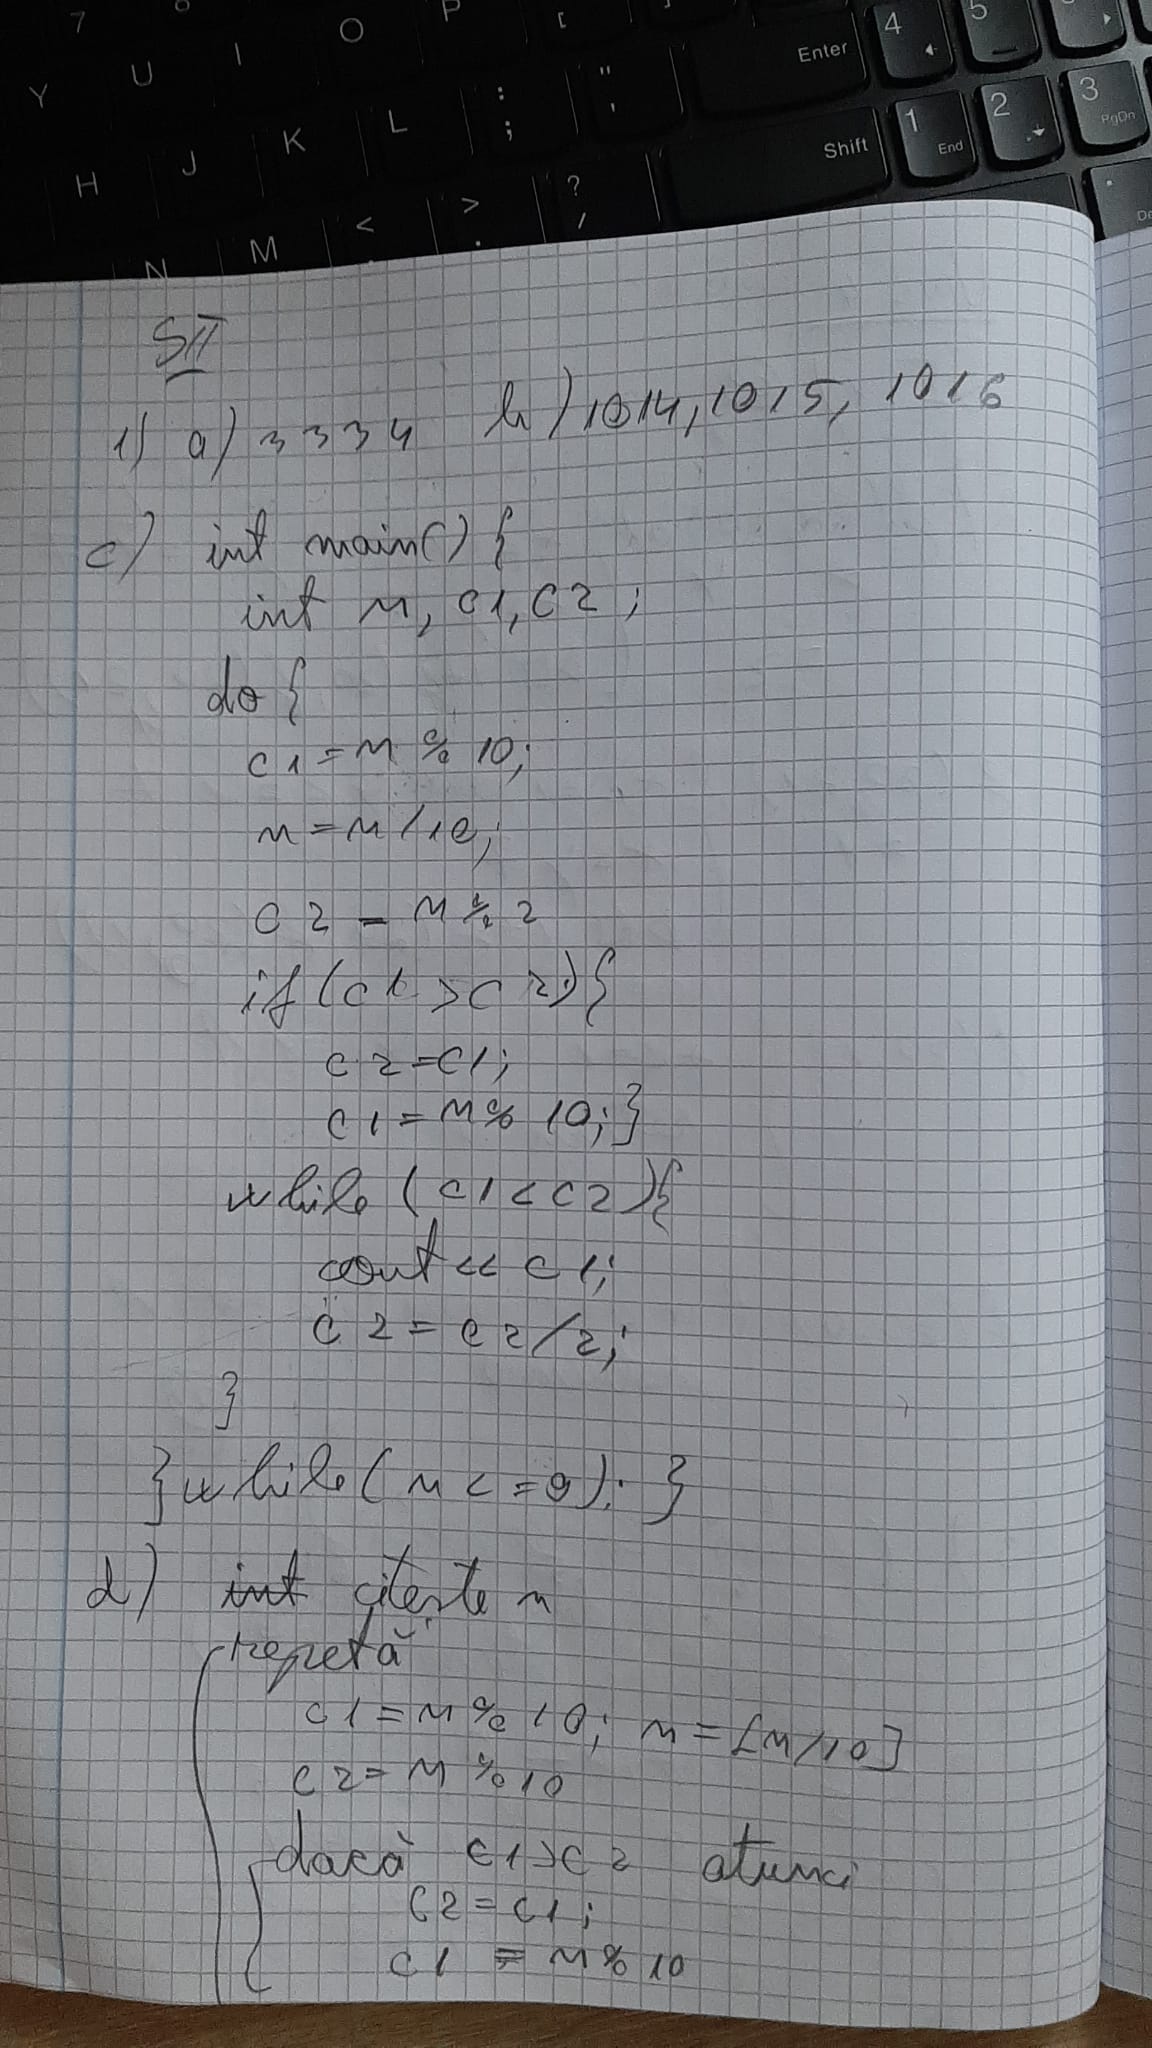 7 8 O P [
Y U I Enter 4 5
H J K L : ; " ' Shift 1 End 2 3 PgDn
N M < > . ? /
SII
1) a) 3334 b) 1014, 1015, 1016
c) int main() {
int n, c1, c2;
do {
c1 = n % 10;
n = n / 10;
c2 = n % 2
if (c1 > c2) {
c2 = c1;
c1 = n % 10; }
while (c1 < c2) {
cout << c1;
c2 = c2/2;
}
} while (n <= 9); }
d) int citește n
repetă
c1 = n % 10; n = [n/10]
c2 = n % 10
dacă c1 > c2 atunci
c2 = c1;
c1 = n % 10